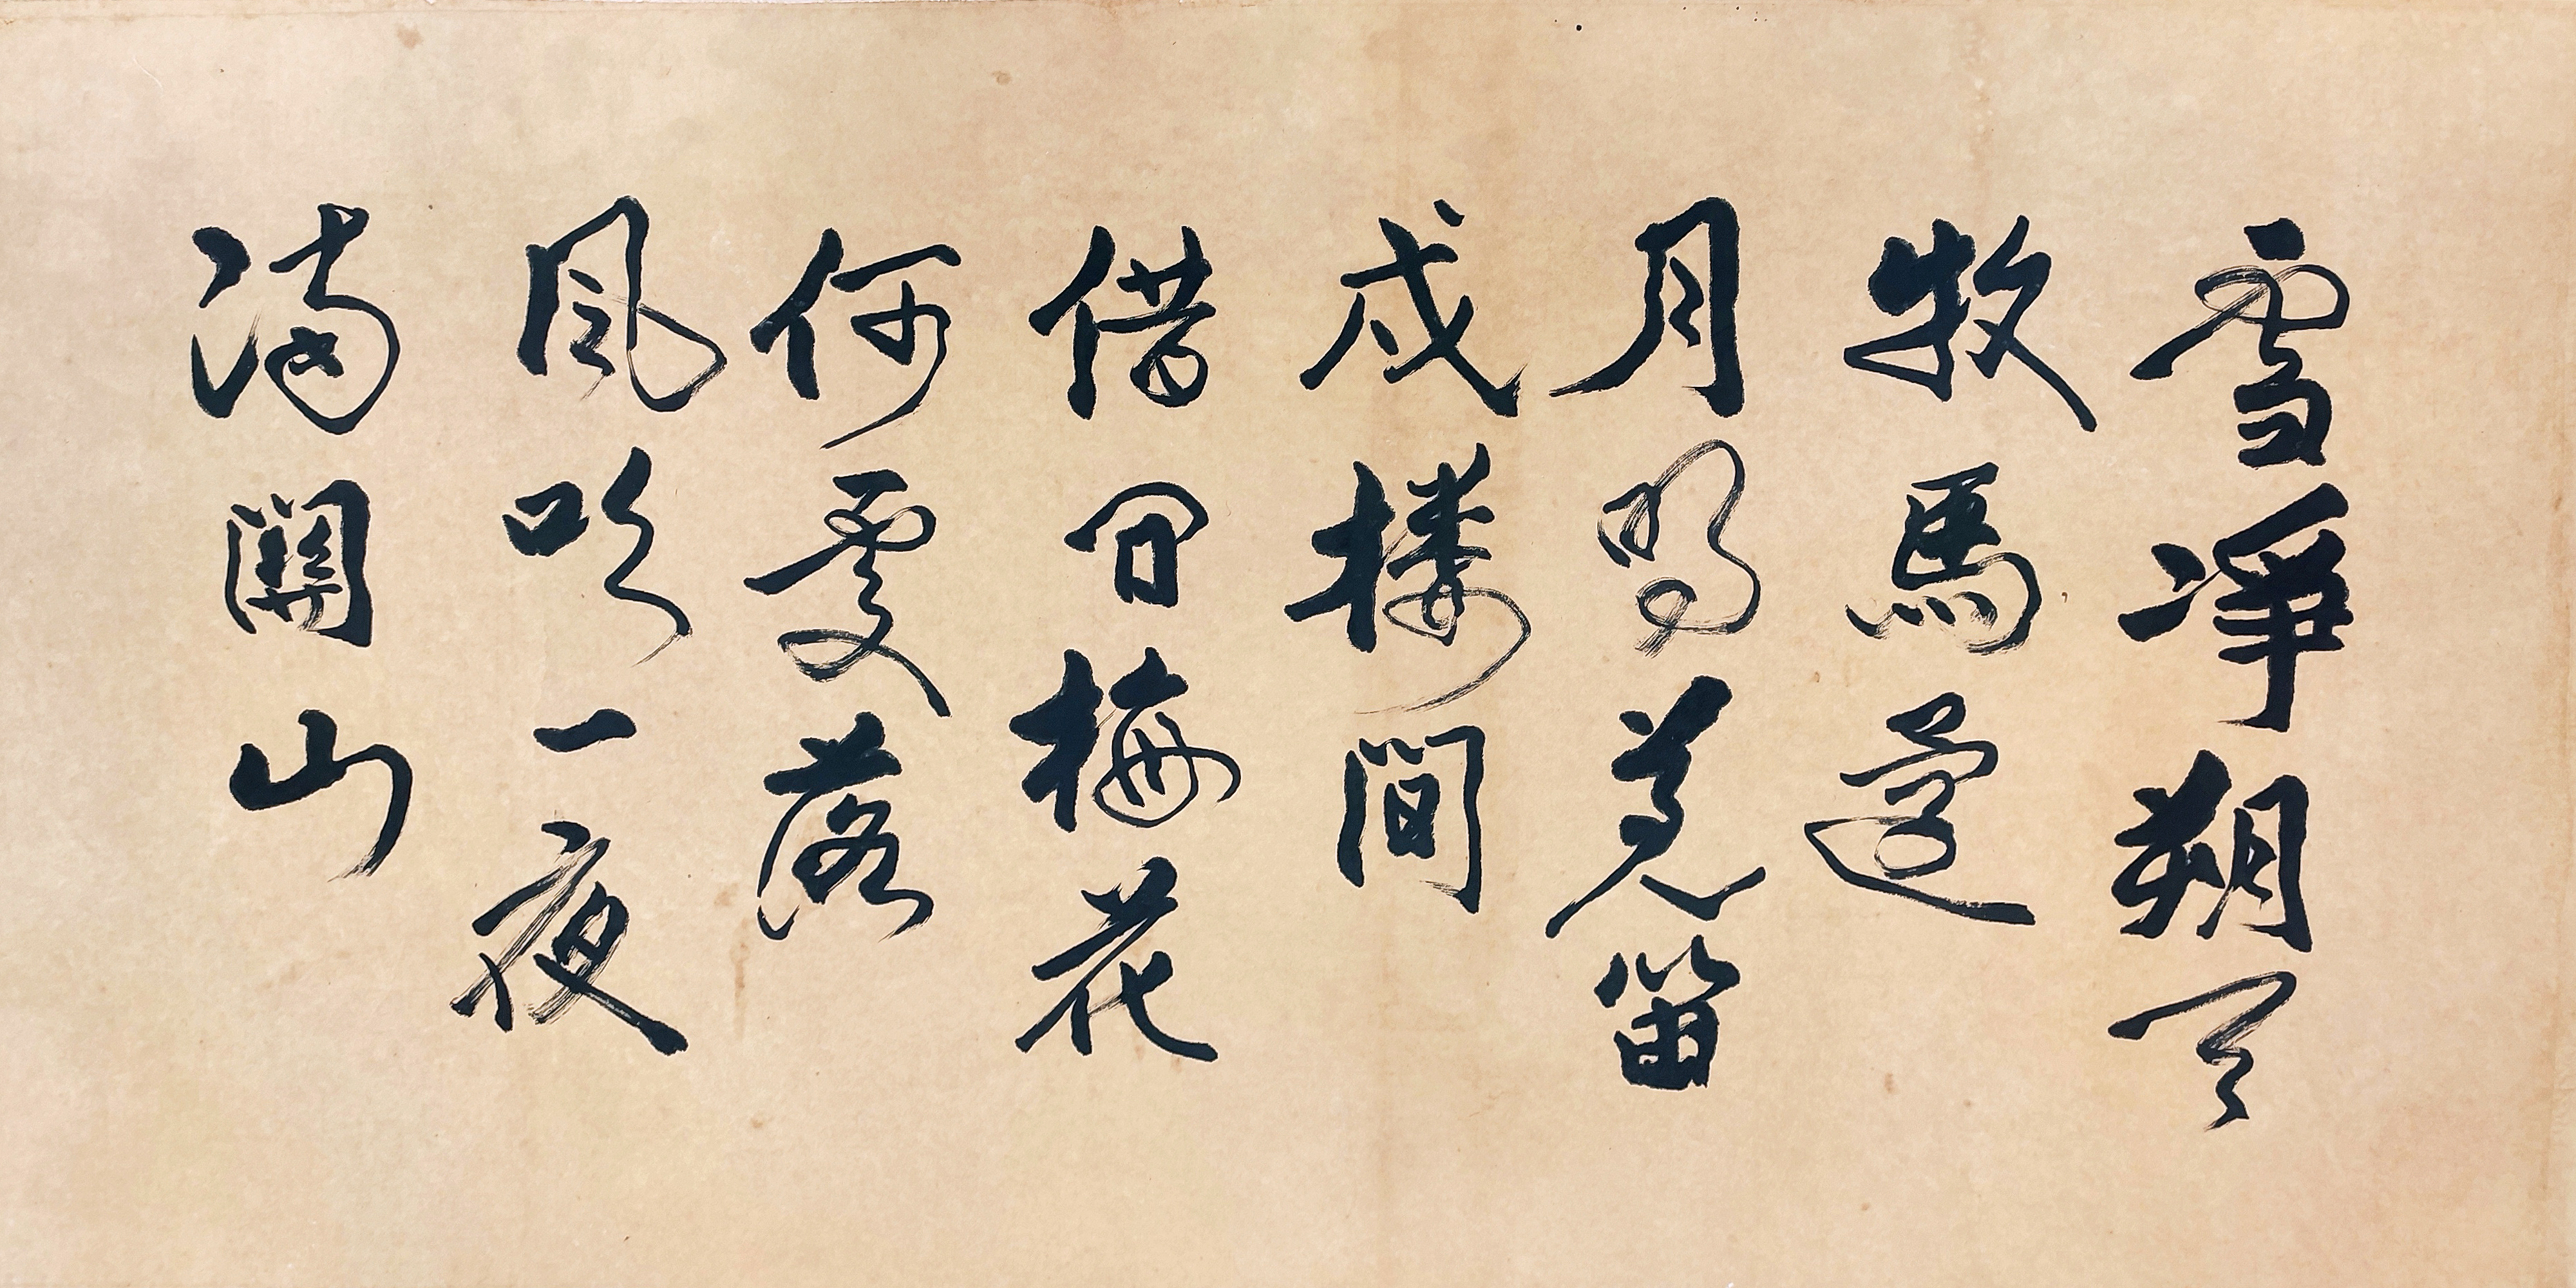 雪凈朔天
牧馬還
月明羌笛
戍楼間
借問梅花
何處落
風吹一夜
滿關山